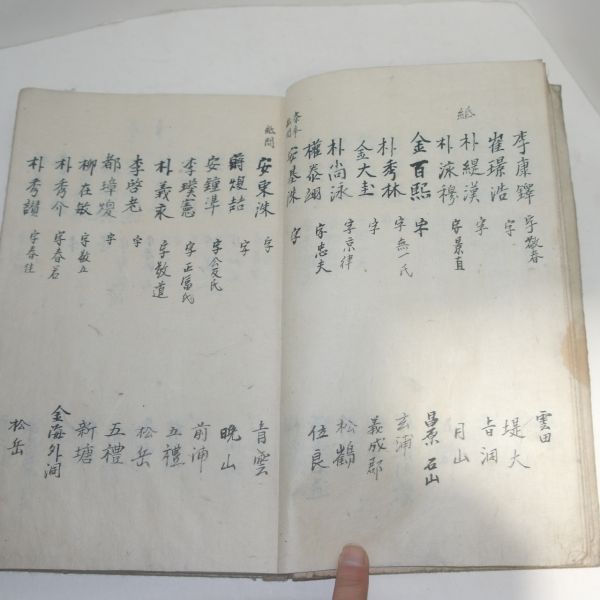 李康鐸 字敬春 雲田
崔璟浩 字 堤大
紙 朴緹漢 字 吉洞
朴泳穆 字景直 月山
金百熙 字 昌原 石山
朴秀林 字無一氏 玄浦
金大圭 字 義成郡
朴尚泳 字京律 松鶴
權泰翊 字忠夫 位良
安基洙 字
紙問 安東洙 字 青雲
煥喆 字 晩山
安鐘準 字公友氏 前浦
李璞憲 字正富氏 五禮
朴義永 字敬道 松岳
李學老 字 五禮
都璋煥 字 新塘
柳在敏 字敬五
朴秀介 字春若 金海外洞
朴秀讚 字春往 松岳